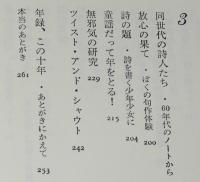 3
同世代の詩人たち・60年代のノートから
放心の果て・ぼくの句作体験 200
詩の題・詩を書く少年少女に 204
童謡だって年をとる! 215
無邪気の研究 229
ツイスト・アンド・シャウト 242
年録、この十年・あとがきにかえて 253
本当のあとがき 261